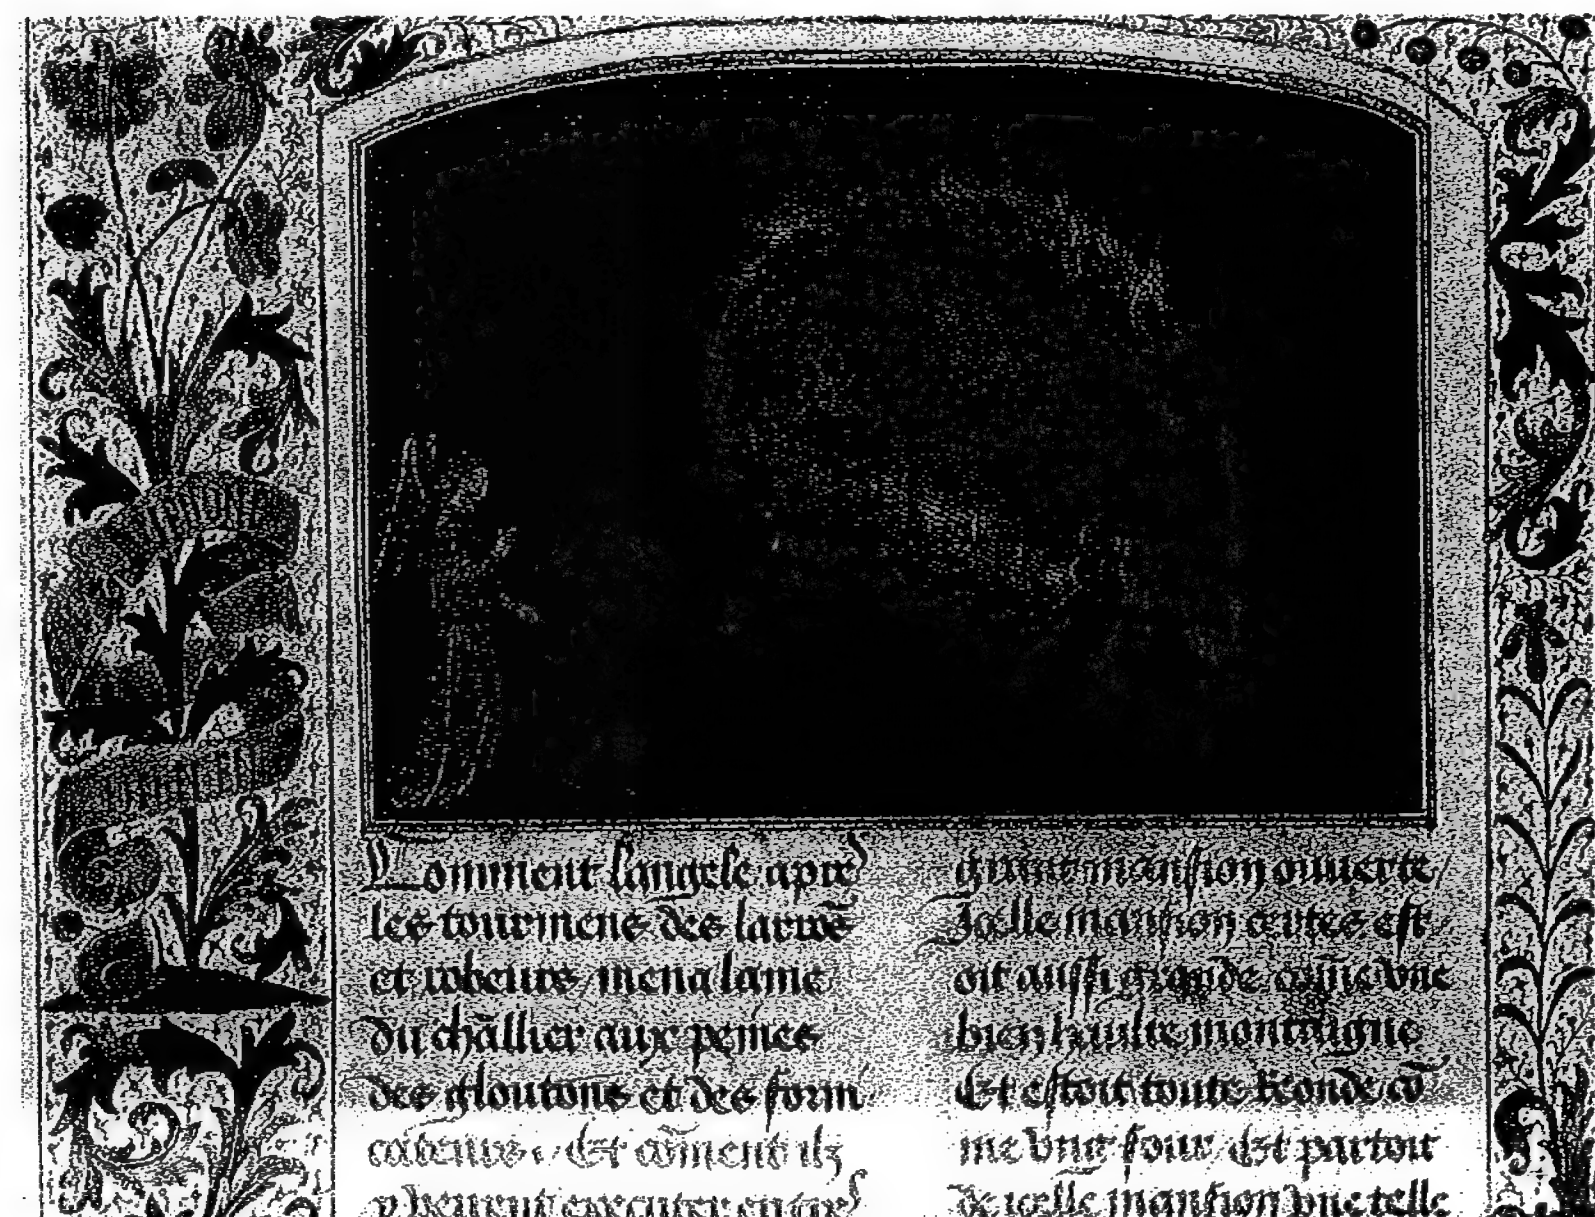 Comment langele apres
les tourmens des larrōs
et robeurs / mena lame
du chāllier aux peines
des gloutons et des forni
cateurs . Et cōment ilz
y
grant mansion ouuerte /
Icelle mansion certes est
oit aussi grande cōme vne
bien haulte montaigne
Et estoit toute Reonde cō
me vng four Et partoit
de icelle mansion vne telle